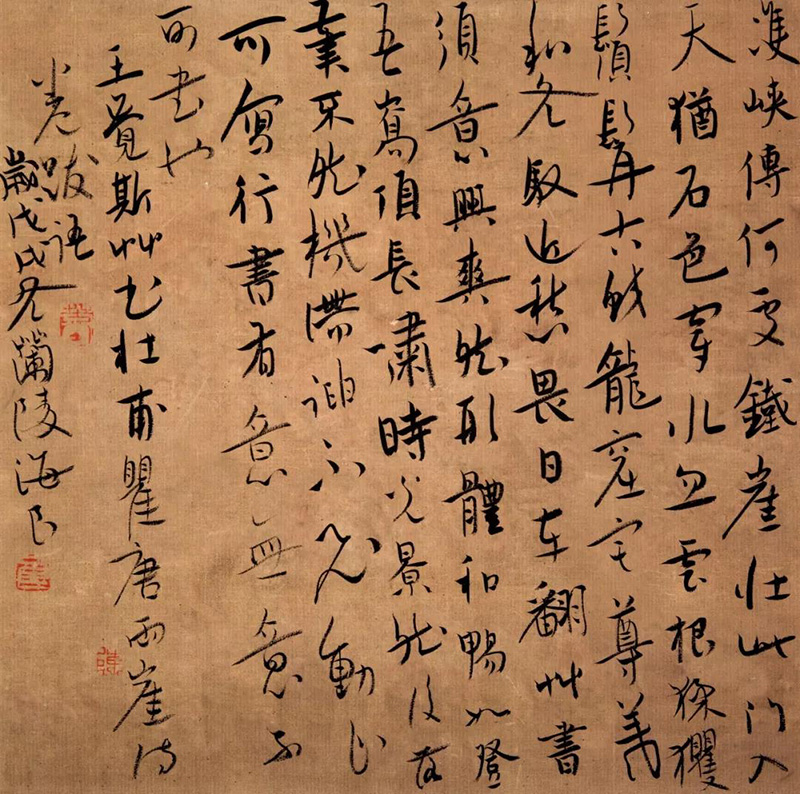 峽傳何處鐵崖壯此門入
天猶石色穿水忽雲根猱玃
鬚髯古蛟龍窟宅尊羲
和冬馭近愁畏日車翻艸書
須意興爽然形體和暢如登
吾嵩頂長嘯時光景然後
筆不然機滯神不動止
可寫行書有意無意不
可書也
王覺斯艸書杜甫瞿唐兩崖詩
卷跋語
歲戊戌冬蘭陵海民